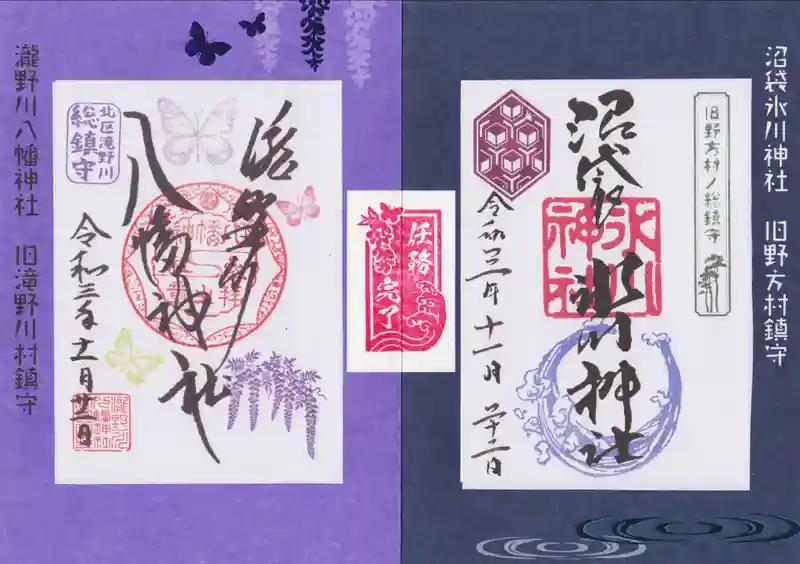 沼袋氷川神社 旧野方村鎮守
旧野方村ノ総鎮守
沼袋氷川神社
氷川神社
令和三年十一月二十二日
任務完了
北区滝野川
総鎮守
滝野川
八幡神社
令和三年十一月廿二日
瀧野川八幡神社 旧滝野川村鎮守